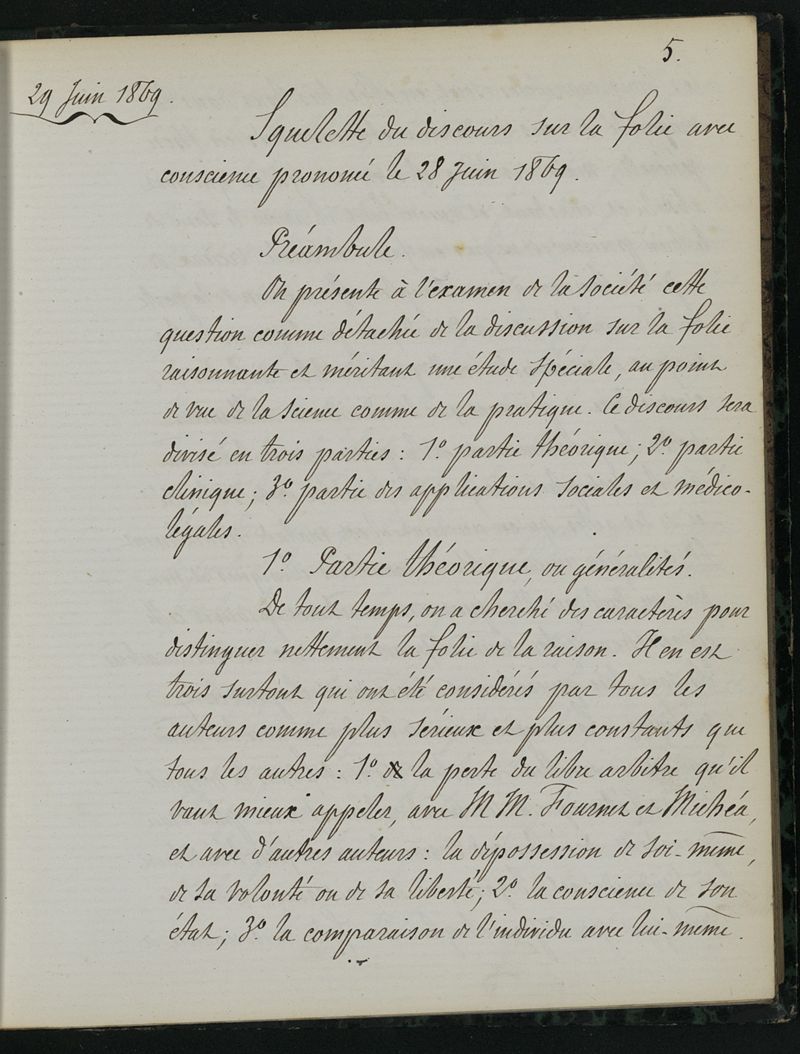 5.
29 Juin 1869.
Squelette du discours sur la folie avec
conscience prononcé le 28 Juin 1869.
Préambule.
On présente à l'examen de la Société cette
question comme détachée de la discussion sur la folie
raisonnante et méritant une étude spéciale, au point
de vue de la Science comme de la pratique. Ce discours sera
divisé en trois parties : 1º partie théorique ; 2º partie
clinique ; 3º partie des applications sociales et médico-
légales.
1º Partie théorique, ou généralités.
De tout temps, on a cherché des caractères pour
distinguer nettement la folie de la raison. Il en est
trois surtout qui ont été considérés par tous les
auteurs comme plus sérieux et plus constants que
tous les autres : 1º la perte du libre arbitre qu'il
vaut mieux appeler, avec MM. Fournet et Michéa,
et avec d'autres auteurs : la dépossession de soi-même,
de sa volonté ou de sa liberté ; 2º la conscience de son
état ; 3º la comparaison de l'individu avec lui-même.